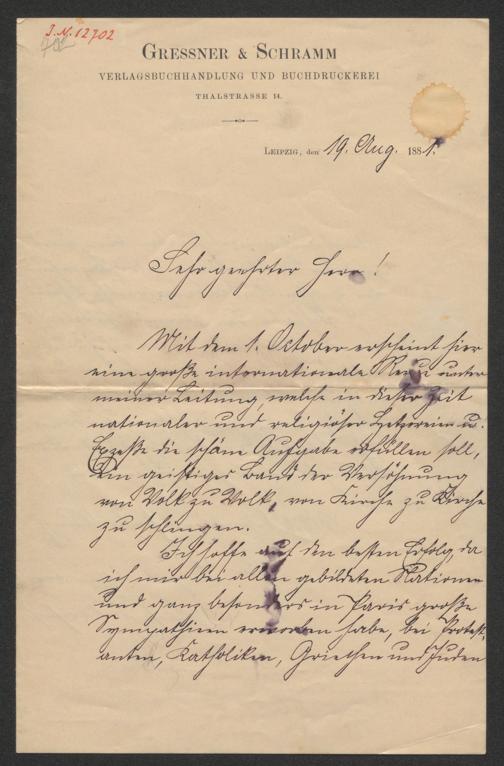 I.N. 12702
GRESSNER & SCHRAMM
VERLAGSBUCHHANDLUNG UND BUCHDRUCKEREI
THALSTRASSE 14.
LEIPZIG, den 19. Aug. 1881.
Sehr geehrter Herr!
Mit dem 1. October erscheint hier
eine große internationale Revue unter
meiner Leitung, welche in dieser Zeit
nationaler und religiöser Hetzereien u.
Exzeße die schöne Aufgabe erfüllen soll,
ein geistiges Band der Versöhnung
von Volk zu Volk, von Kirche zu Kirche
zu schlingen.
Ich hoffe auf den besten Erfolg, da
ich mir bei allen gebildeten Nationen
und ganz besonders in Paris große
Sympathien erworben habe, bei Protest-
anten, Katholiken, Griechen und Juden